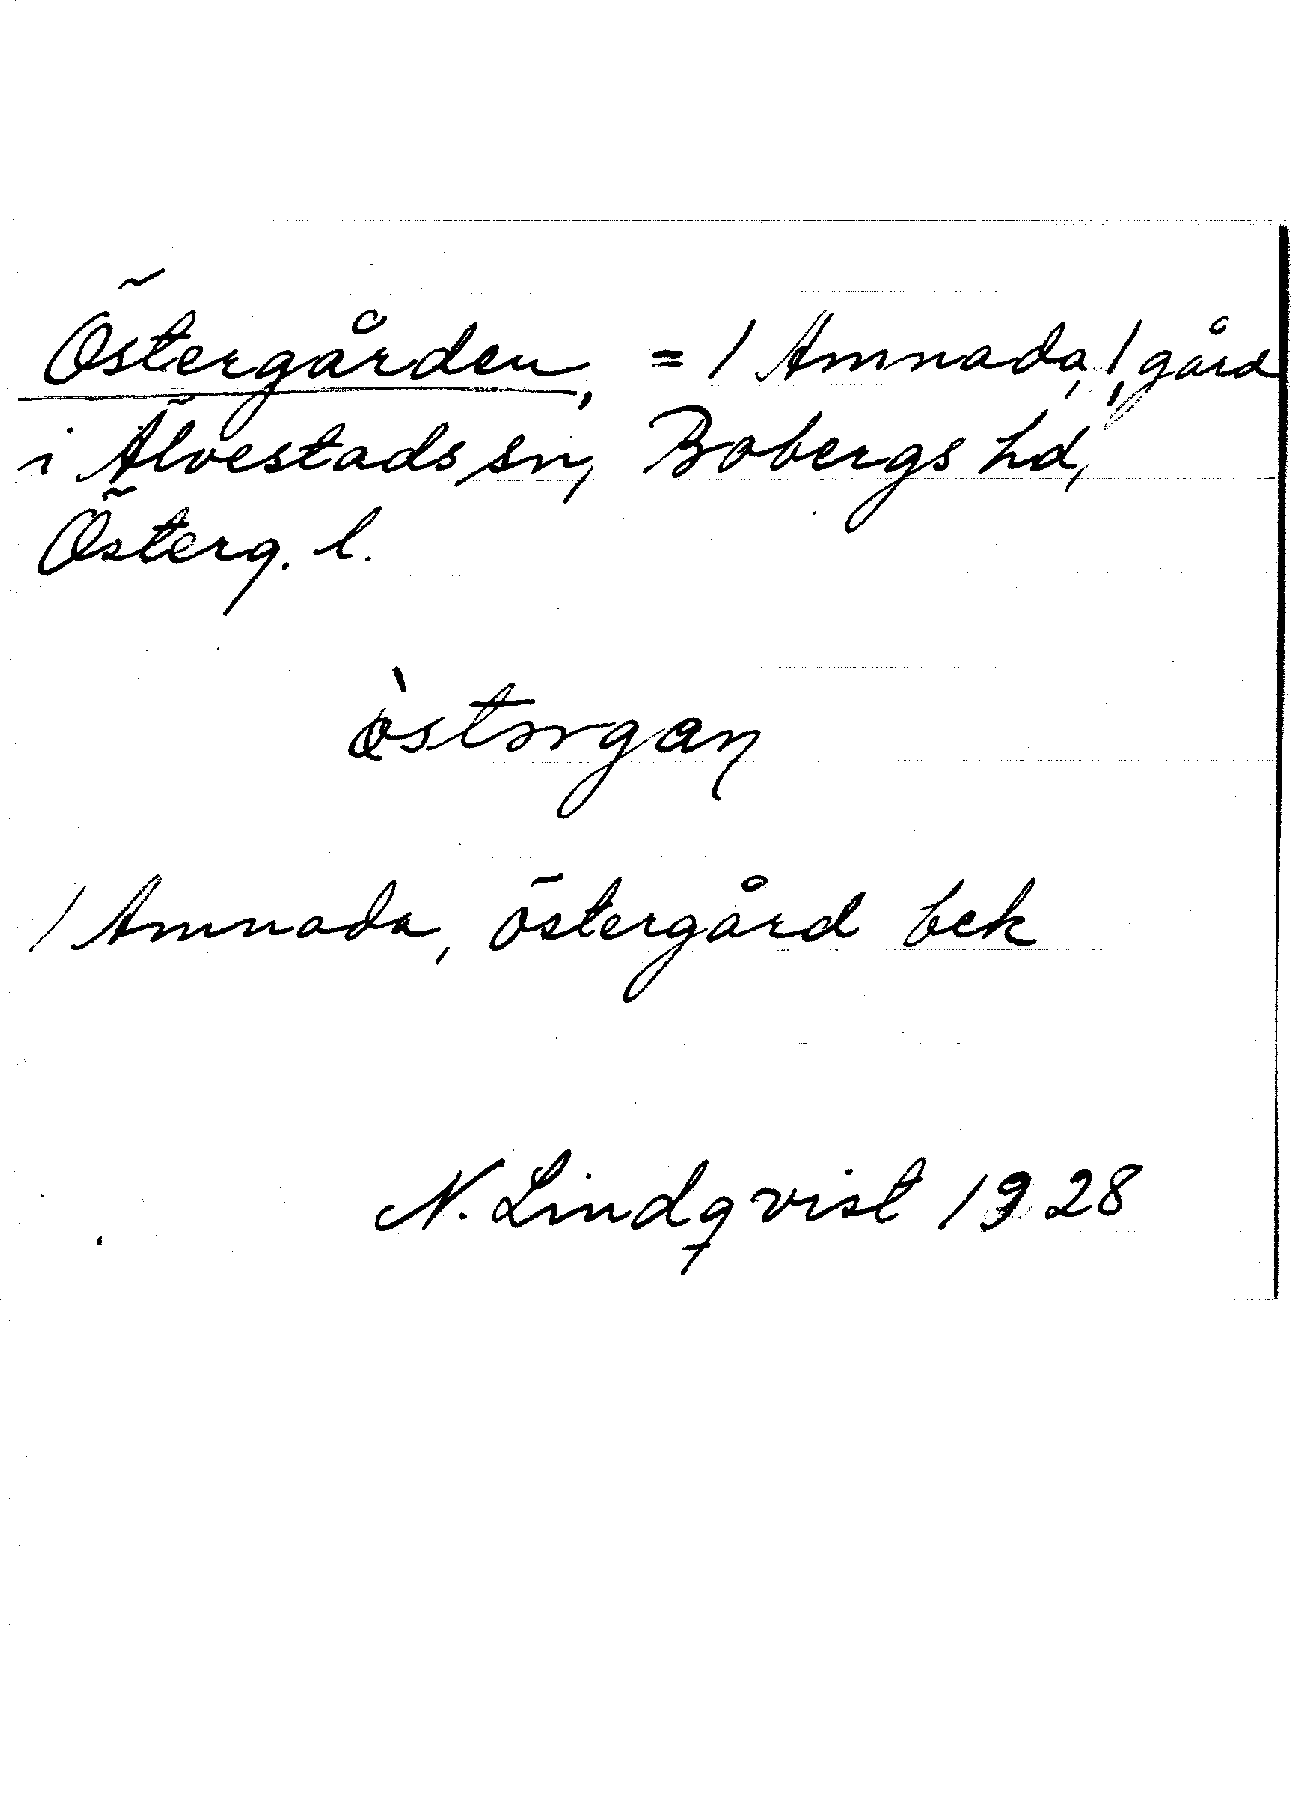 Östergården, = 1 Amnada, 1, gård
i Älvestads sn, Bobergs hd,
Österg. l.
östərgaɳ
1 Amnada, östergård bek
N. Lindqvist 1928